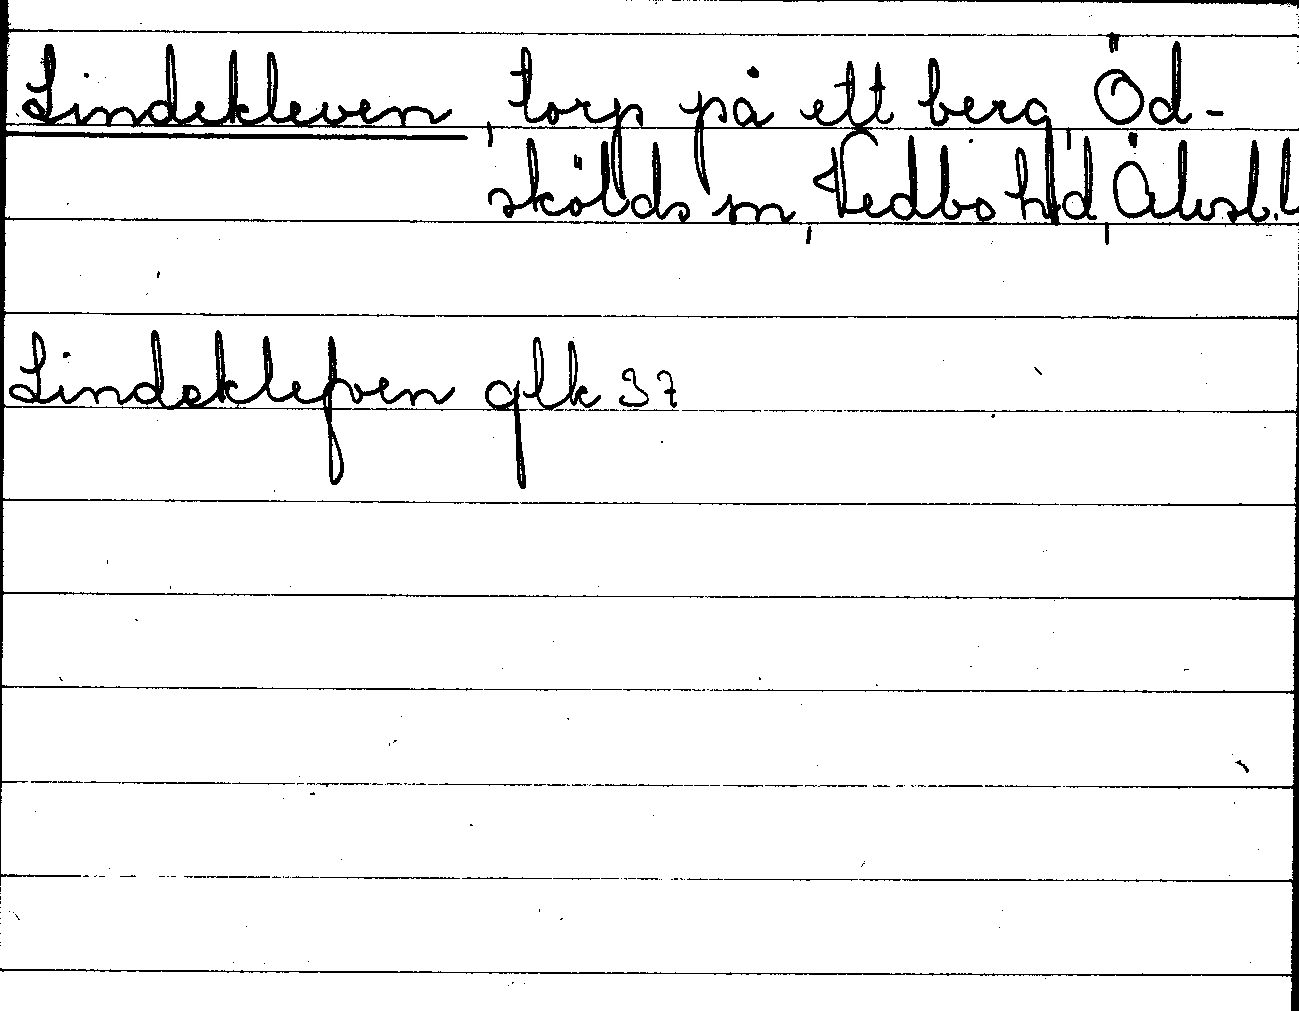 Lindekleven, torp på ett berg, Öd-
skölds sn, Vedbo hd, Älvsb. l
Lindeklefven glk 37